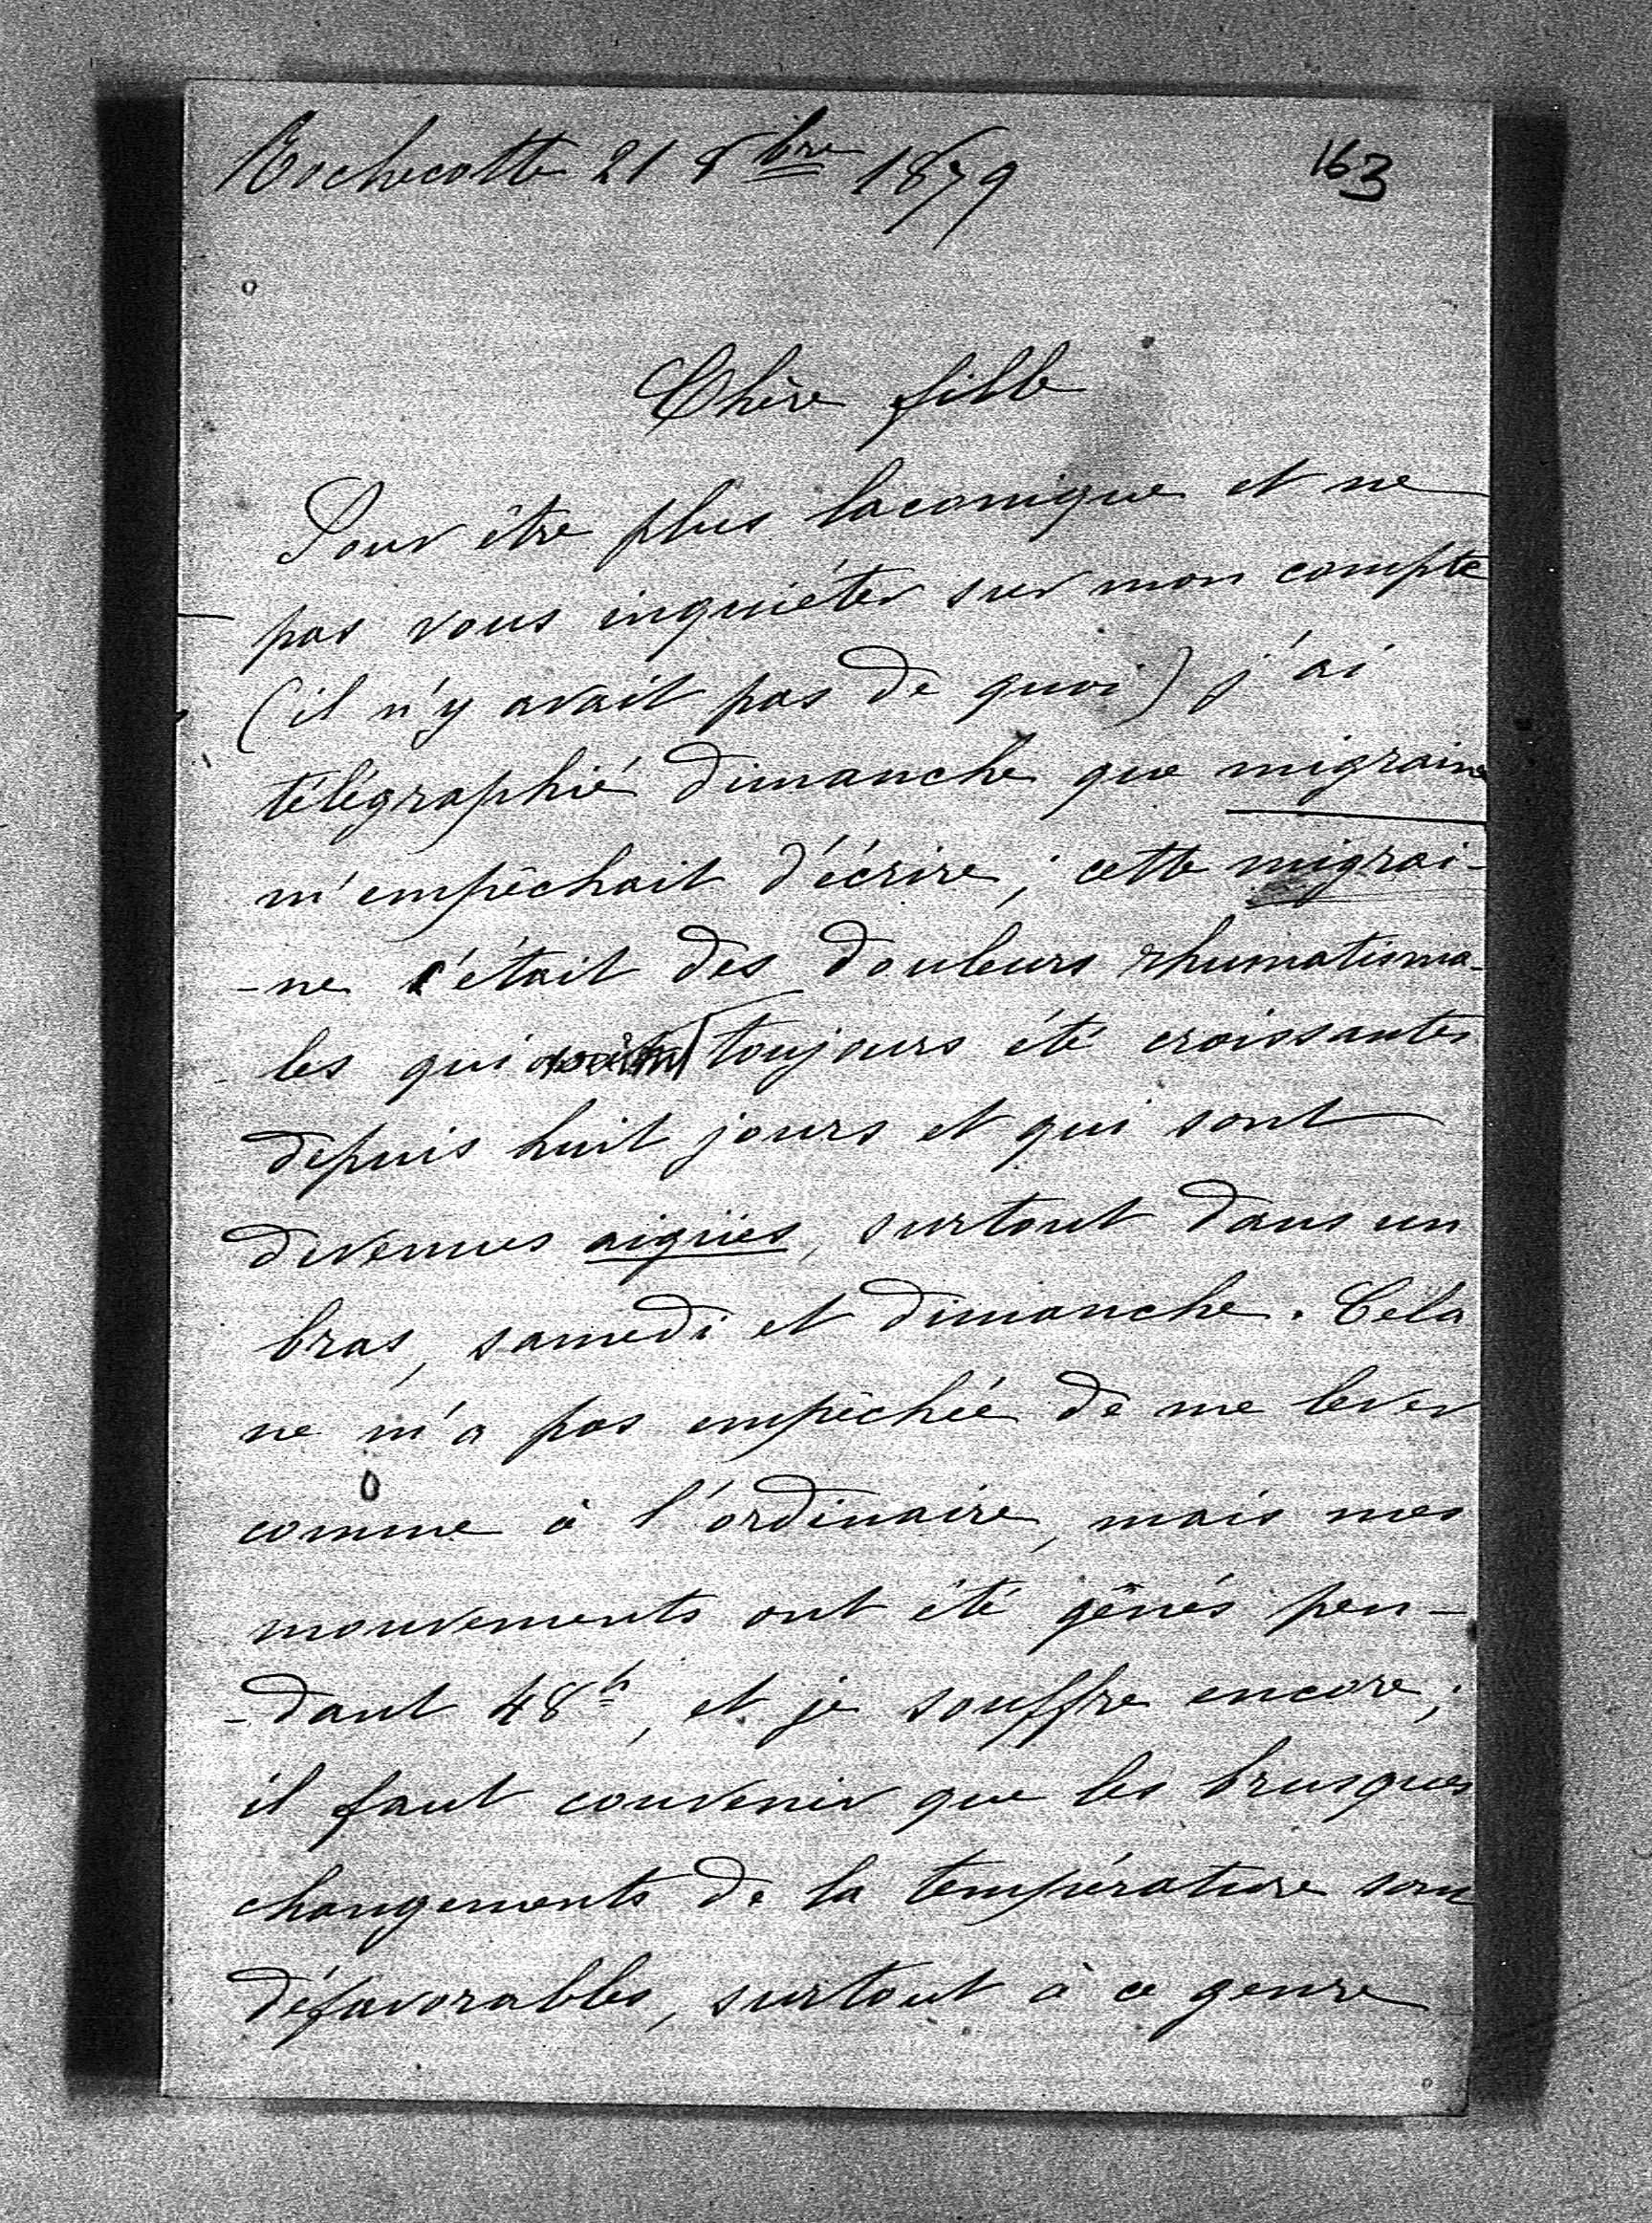 Rochecotte 21 8bre 1879
163
Chère fille
Pour être plus laconique et ne
pas vous inquiéter sur mon compte
(il n'y avait pas de quoi) j'ai
télégraphié dimanche que migraine
m'empêchait d'écrire ; cette migrai-
-ne c'était des douleurs rhumatisma-
-les qui toujours été croissantes
depuis huit jours et qui sont
devenues aigües, surtout dans un
bras, samedi et dimanche. Cela
ne m'a pas empêchée de me lever
comme à l'ordinaire, mais mes
mouvements ont été gênés pen-
-dant 48h, et je souffre encore ;
il faut convenir que les brusques
changements de la température sont
défavorables, surtout à ce genre